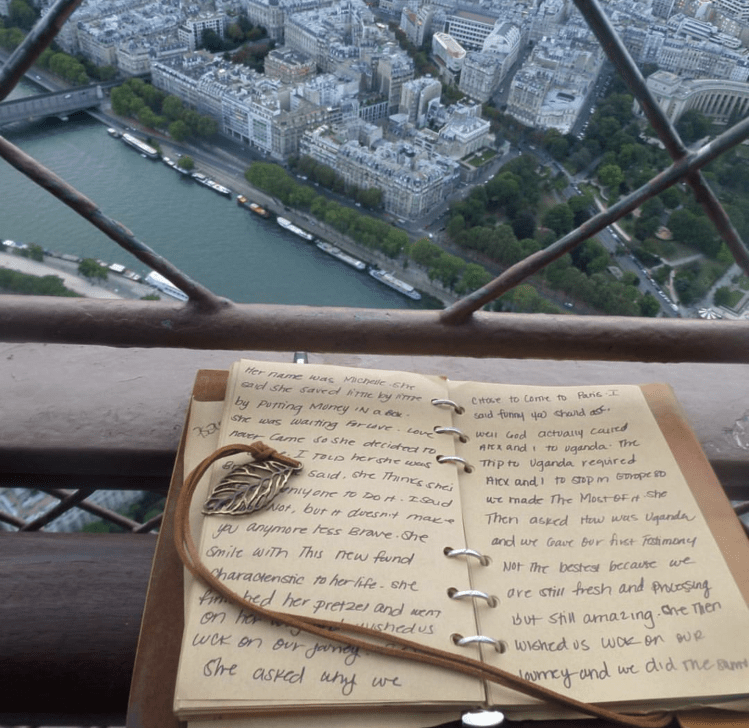 Her name was Michelle she
said she saved little by little
by putting money in a box.
she was waiting for love. Love
never came so she decided to
I told her she was
said, she things she's
anyone to do it. I said
Not, but it doesn't make
you anymore less Brave. she
smile with this new found
characteristic to her life. she
finished her pretzel and went
on her wished us
luck on our journey.
she asked why we
chose to come to Paris. I
said funny you should ask.
well God actually called
Alex and I to Uganda. The
Trip to Uganda required
Alex and I to stop in Europe so
we made the most of it. she
Then asked How was Uganda
and we Gave our first Testimony
Not the bestest because we
are still fresh and processing
but still amazing. she then
wished us luck on our
journey and we did the same